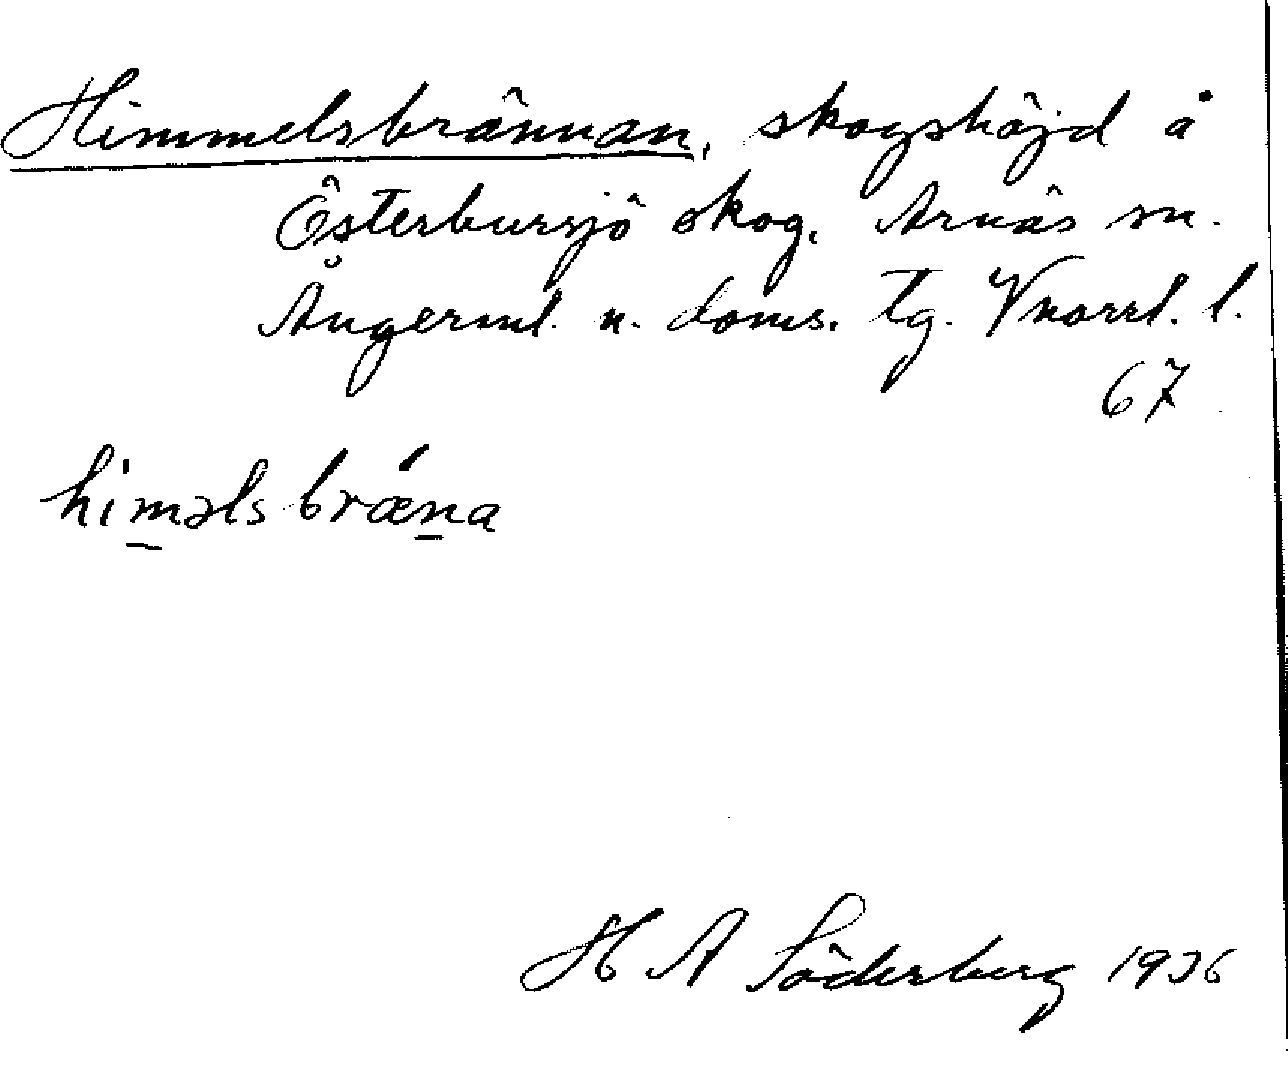 Himmelsbrännan, skogshöjd å
Österbursjö skog. Arnäs sn.
Ångerml. n. doms. tg. Vnorrl. l.
67
himəls bræ̀na
H A Söderberg 1936